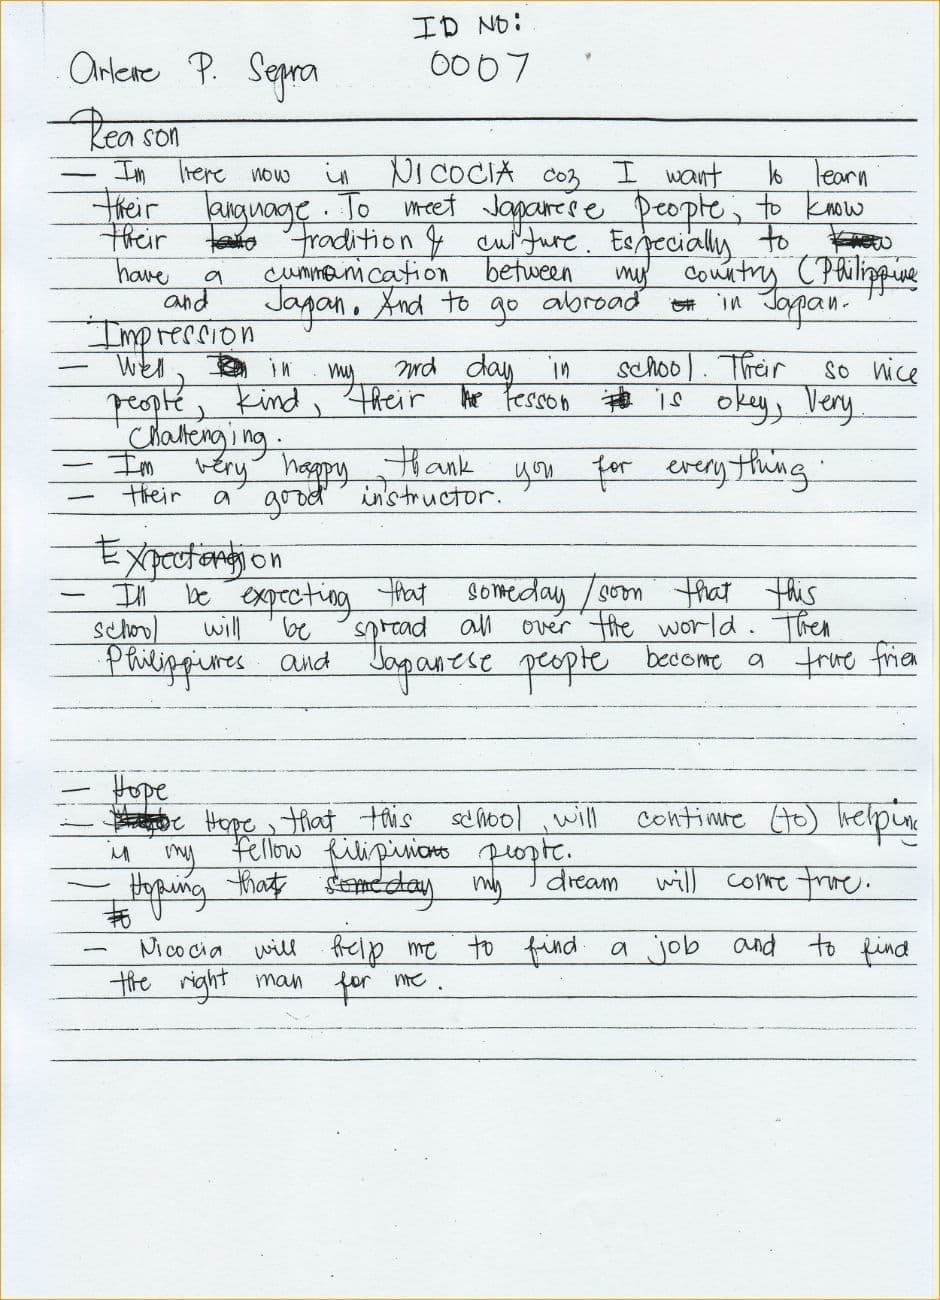 ID NO:
Arlene P. Segra 0007
Reason
— Im here now in NICOCIA coz I want to learn
their language. To meet Japanese people, to know
their tradition & culture. Especially to know
have a cummonication between my country (Philippine
and Japan. And to go abroad or in Japan.
Impression
— Well, in my 2nd day in school. Their so nice
people, kind, their lesson is okey, Very
Challenging.
— Im very happy, thank you for everything.
— their a good instructor.
Expectation
— I'll be expecting that someday/soon that this
school will be spread all over the world. Then
Philippines and Japanese people become a true frien
— Hope
— Hope, that this school, will continue (to) helping
in my fellow filipinions people.
— Hoping that someday my dream will come true.
to
— Nicocia will help me to find a job and to find
the right man for me.